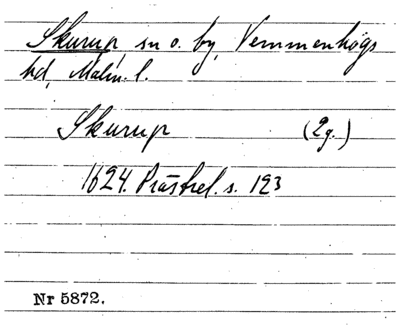 Skurup, sn o. by, Vemmenhögs
hd, Malm. l.
Skurup (2g.)
1624. Prästrel. s. 123
Nr 5872.